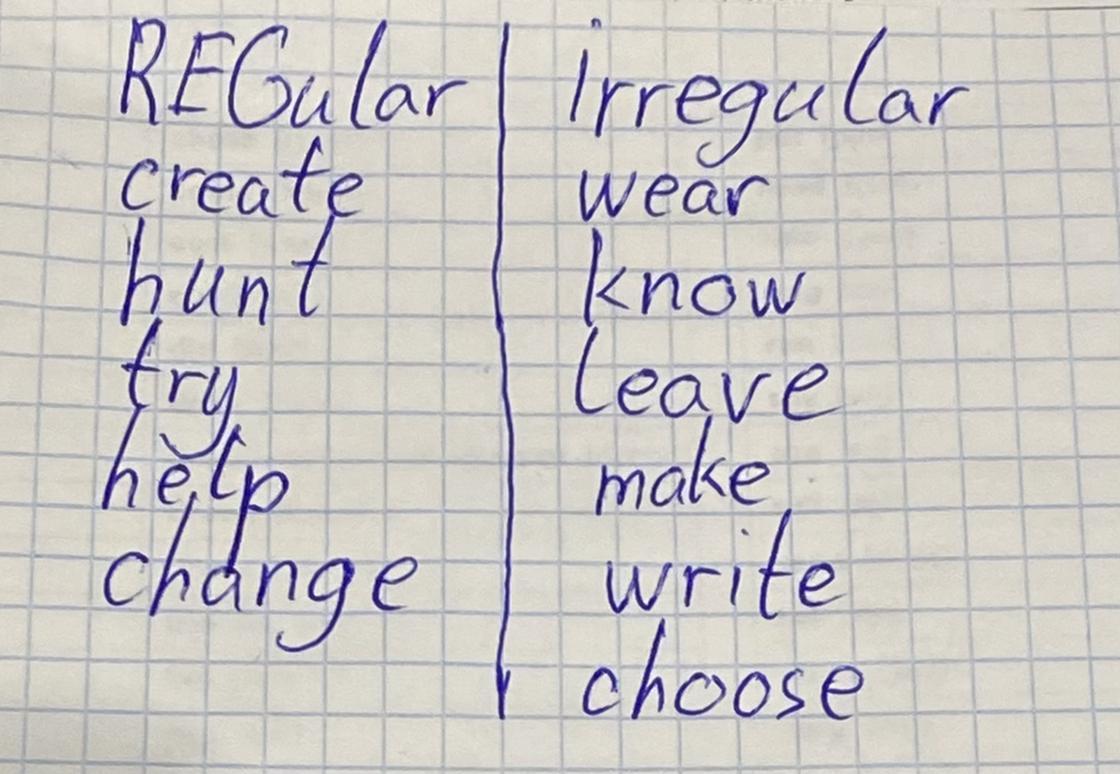 REGular
create
hunt
try
help
change
irregular
wear
know
leave
make
write
choose